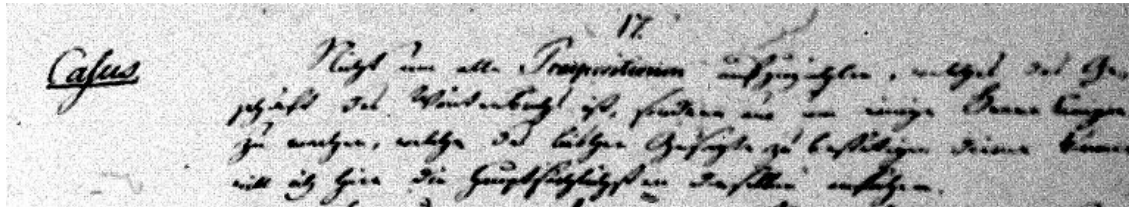 17.
Casus Nicht um alle Praepositionen aufzuzählen, welches das Ge-
schäft des Wörterbuchs ist, sondern nur um einige Bemerkungen
zu machen, welche das bisher Gesagte zu bestätigen dienen können
will ich hier die hauptsächlichsten derselben anführen.